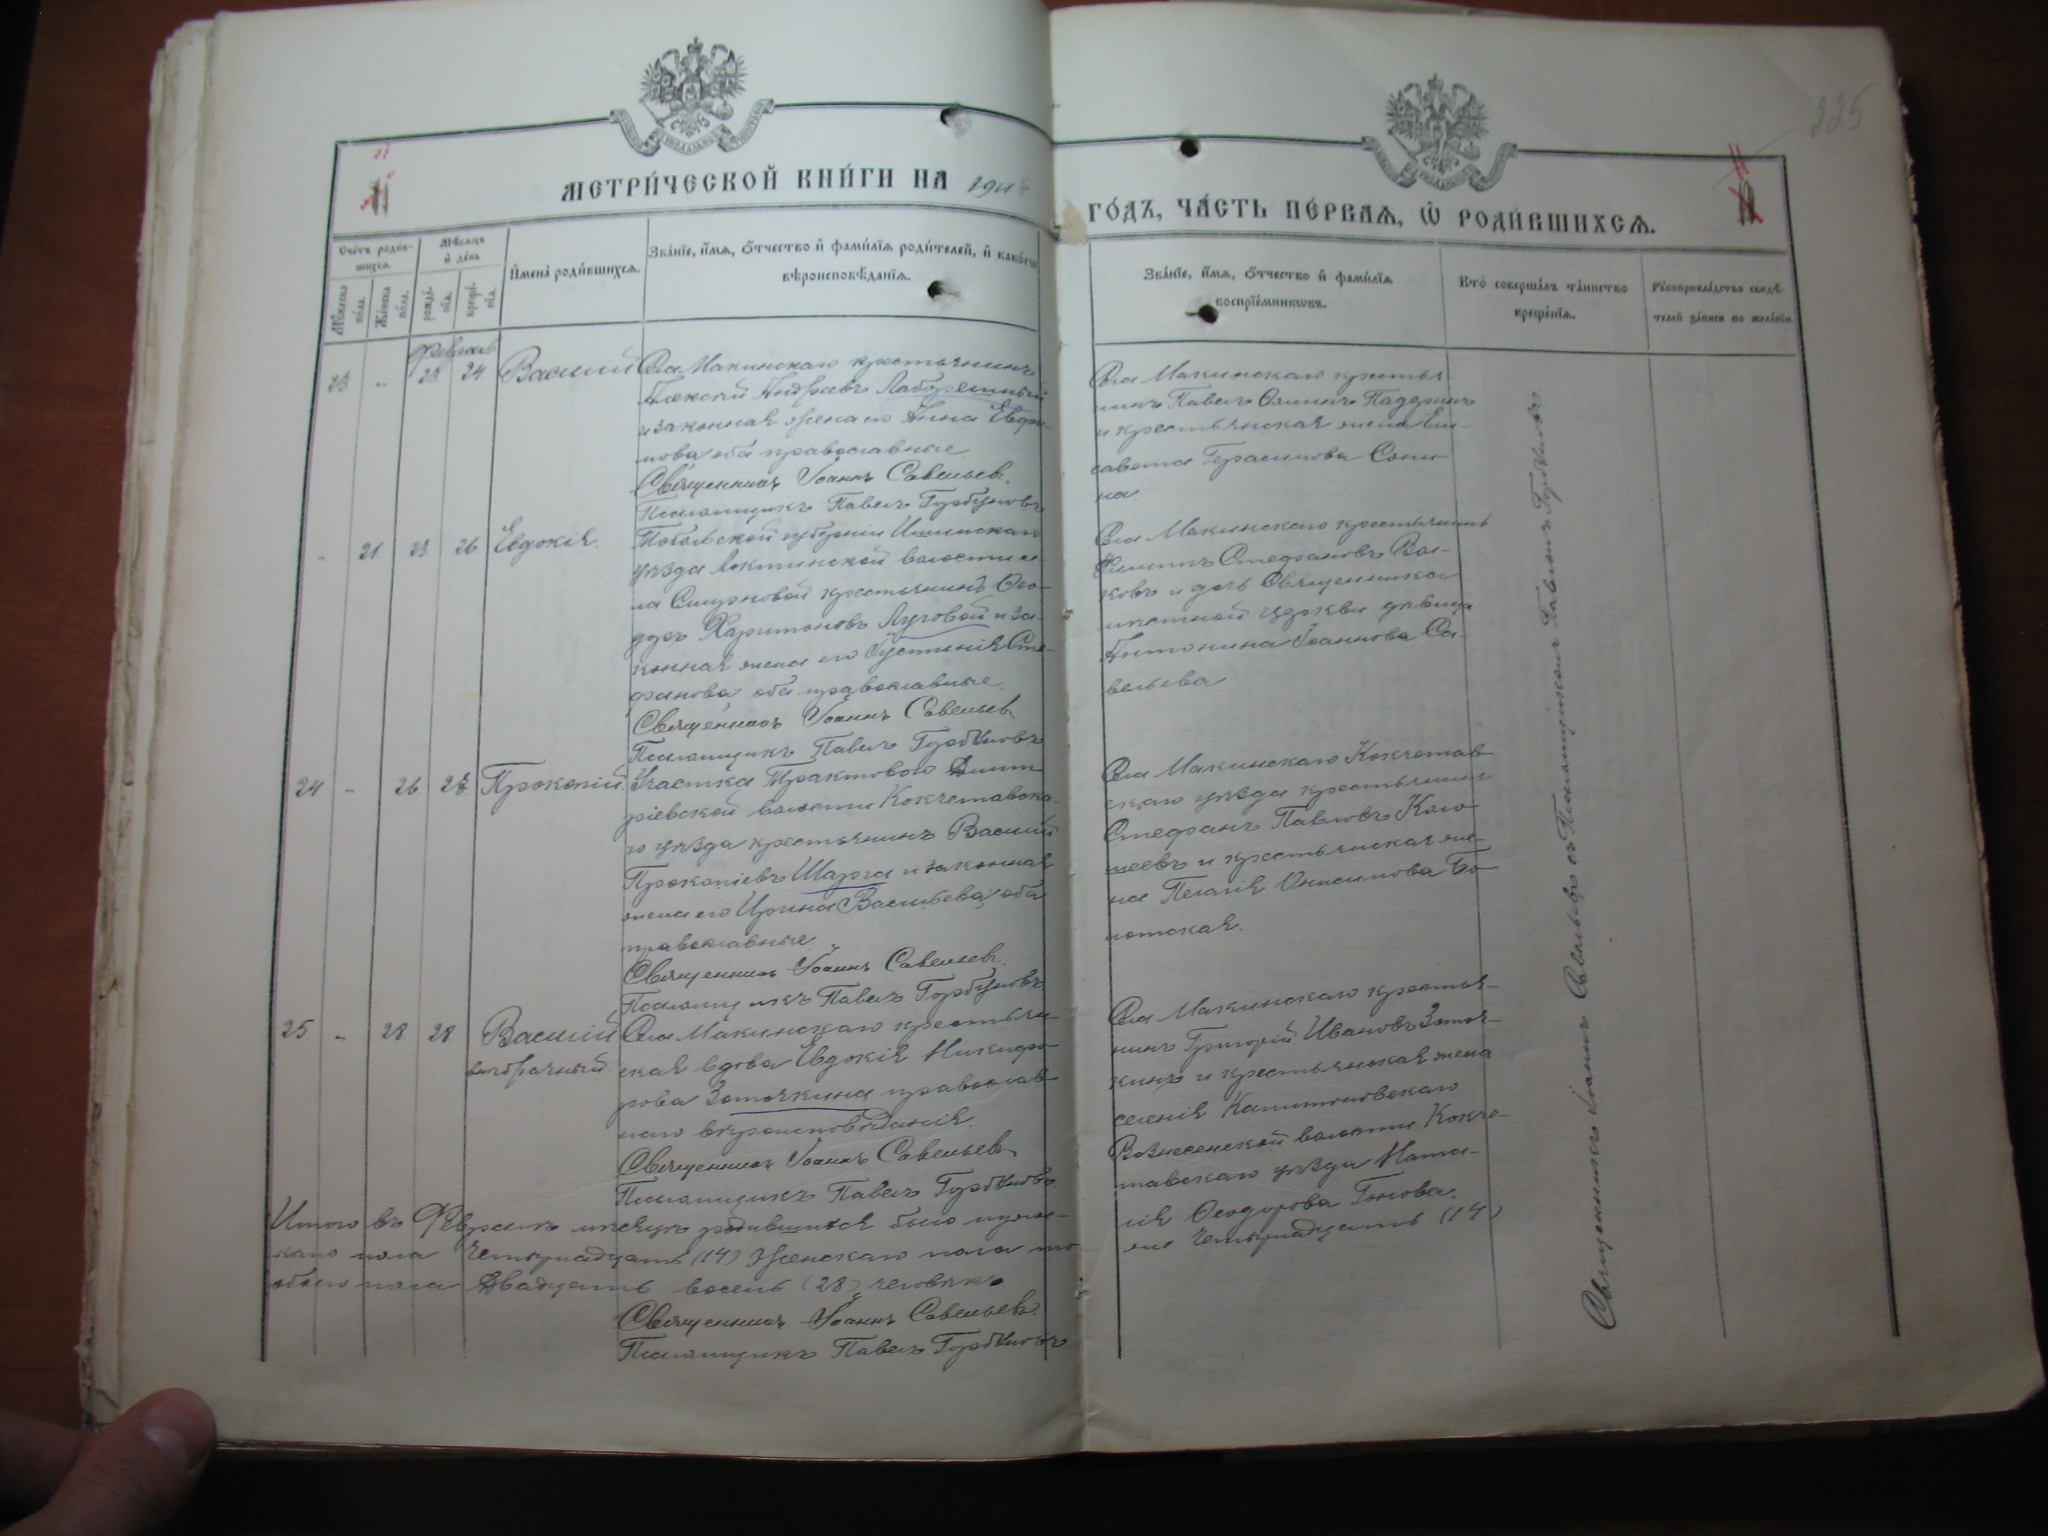 225
МЕТРИ́ЧЕСКОЙ КНИ́ГИ НА 191
ГО́ДЪ, ЧА́СТЬ ПЕ́РВАЯ, Ѽ РОДИ́ВШИХСЯ.
Сче́тъ роди́в-
шихся.
Мѣ́сяцъ
и де́нь
Мꙋ́жеска по́ла.
Же́нска по́ла.
рожде́-
нїя.
креще́-
нїя.
И҆мена̀ роди́вшихся.
Зва́нїе, и҆́мя, ѻ҆́тчество и҆ фами́лїя роди́телей, и҆ како́гѡ
вѣроисповѣ́данїя.
Зва́нїе, и҆́мя, ѻ҆́тчество и҆ фами́лїя
воспрїе́мникѡвъ.
Кто̀ соверша́лъ та́инство
креще́нїя.
Рꙋкоприкла́дство свидѣ́-
телей за́писи по жела́нїю
Февраль
23 " 23 24 Василій
Села Макинскаго крестьянинъ
Алексій Андреевъ
и законная жена его Анна
оба православные
Священникъ Іоаннъ Савельевъ.
Псаломщикъ Павелъ Горбуновъ
Села Макинскаго кресть-
нинъ Павелъ
и крестьянская жена Ели-
савета Герасимова
на
" 21 23 26 Евдокія.
Тобольской губерніи Ишимскаго
уѣзда Локтинской волости се-
ла Смирновой крестьянинъ Ѳео-
доръ Харитоновъ Луговой и за-
конная жена его Іустинія Сте-
фанова оба православные.
Священникъ Іоаннъ Савельевъ
Псаломщикъ Павелъ Горбуновъ
Села Макинскаго крестьянинъ
Филиппъ Стефановъ Вол-
ковъ и дочь Священника
мѣстной церкви дѣвица
Антонина Іоаннова Са-
вельева
24 " 26 28 Прокопій.
Участка Трактоваго Дмит-
ріевской волости Кокчетавска-
го уѣзда крестьянинъ Василій
Прокопіевъ Шарга и законная
жена его Ирина Васильева, оба
православные.
Священникъ Іоаннъ Савельевъ.
Псаломщикъ Павелъ Горбуновъ
Села Макинскаго Кокчетав-
скаго уѣзда крестьянинъ
Стефанъ Павловъ
и крестьянская же-
на Пелагія Онисимова
25 " 28 28 Василій
внѣбрачный.
Села Макинскаго крестьян-
ская вдова Евдокія Никифо-
рова Заточкина православ-
наго вѣроисповѣданія.
Священникъ Іоаннъ Савельевъ
Псаломщикъ Павелъ Горбуновъ
Села Макинскаго кресть-
нинъ Григорій Ивановъ Заточ-
кинъ и крестьянская жена
селенія Капитоновскаго
Вознесенской волости Кокче-
тавскаго уѣзда Ната-
лія Ѳеодорова
Итого въ Февралѣ мѣсяцѣ родившихся было муже-
скаго пола четырнадцать (14) женскаго пола то-
же четырнадцать (14)
обоего пола двадцать восемь (28) человѣкъ
Священникъ Іоаннъ Савельевъ.
Псаломщикъ Павелъ Горбуновъ.
Священникъ Іоаннъ Савельевъ съ Псаломщикомъ Павломъ Горбуновымъ